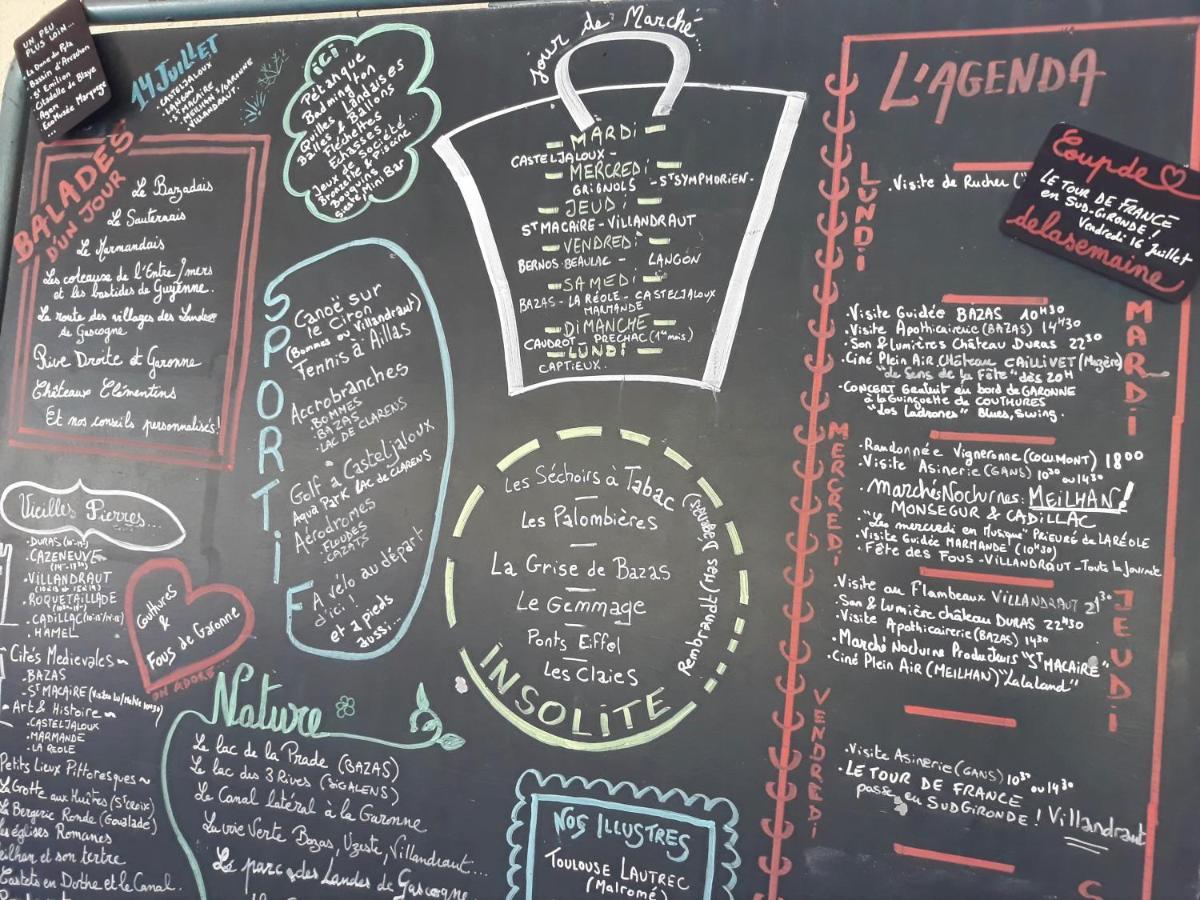 UN PEU
PLUS LOIN...
. La Dune du Pyla
. Bassin d'Arcachon
. St Emilion
. Citadelle de Blaye
. Agen
. EcoMusée Marquèze
14 JUILLET
. CASTELJALOUX
. LANGON
. St MACAIRE
. MEILHAN S/GARONNE
. VILLANDRAUT.
...
BALADES
D'UN JOUR
Le Bazadais
Le Sauternais
Le Marmandais
Les coteaux de l'Entre 2 mers
et les bastides de Guyenne.
La route des villages des Landes
de Gascogne
Rive Droite et Garonne
Châteaux Clémentins
Et nos conseils personnalisés!
ici
Pétanque
Badminton
Quilles Landaises
Balles & Ballons
Fléchettes
Echasses
Jeux de Société...
Bronzette & Piscine
Bouquins
Sieste, Mini Bar
SPORTIF
Canoë sur
le Ciron
(Bommes ou Villandraut)
Tennis à Aillas
Accrobranches
. BOMMES
. BAZAS
. LAC DE CLARENS
Golf à Casteljaloux
Aqua Park LAC DE CLARENS
Aérodromes
. FLOUDES
. CAZATS
A vélo au départ
d'ici !
et à pieds
aussi...
Jour de Marché...
MARDI
CASTELJALOUX -
MERCREDI
GRIGNOLS - St SYMPHORIEN -
JEUDI
St MACAIRE - VILLANDRAUT
VENDREDI
BERNOS-BEAULAC - LANGON
SAMEDI
BAZAS - LA RÉOLE - CASTELJALOUX
MARMANDE
DIMANCHE
CAUDROT - PRECHAC (1er mois)
LUNDI
CAPTIEUX.
Les Séchoirs à Tabac
Les Palombières
La Grise de Bazas
Le Gemmage
Ponts Eiffel
Les Claies
Rembrandt (Mas D'Agenais)
INSOLITE
Vieilles Pierres...
. CAZENEUVE
. VILLANDRAUT
. ROQUETAILLADE
. CADILLAC
. HAMEL
Cités Medievales ~
. BAZAS
- St MACAIRE
. Art & Histoire ~
. CASTELJALOUX
. MARMANDE
. LA REOLE
Petits Lieux Pittoresques ~
La Grotte aux Huîtres (Ste Croix)
La Bergerie Ronde (Goualade)
Les églises Romanes
Meilhan et son tertre
Castets en Dorthe et le Canal.
Couthures
&
Fous de Garonne
ON ADORE
Nature
Le lac de la Prade (BAZAS)
Le lac des 3 Rives (SIGALENS)
Le Canal latéral à la Garonne
La voie Verte Bazas, Uzeste, Villandraut...
Le parc des Landes de Gascogne
NOS ILLUSTRES
TOULOUSE LAUTREC
(Malromé)
L'AGENDA
LUNDI
. Visite de Rucher (
Coup de
LE TOUR DE FRANCE
en SUD-GIRONDE !
Vendredi 16 juillet
de la semaine
MARDI
. Visite Guidée BAZAS 10H30
. Visite Apothicairerie (BAZAS) 14H30
. Son & lumières Château DURAS 22 30
. Ciné Plein Air Château CAILLIVET (Mazère)
"Le Sens de la Fête" dès 20H
. CONCERT Gratuit au bord de GARONNE
à la Guinguette de COUTHURES
"Los Ladrones" Blues, Swing.
MERCREDI
. Randonnée Vigneronne (COCUMONT) 18 00
. Visite Asinerie (GANS) 10 30 ou 14 30
. Marchés Nocturnes: MEILHAN!
MONSEGUR & CADILLAC
. "Les mercredi en Musique" PRIEURÉ DE LA RÉOLE
. Visite Guidée MARMANDE (10H30)
. Fête des FOUS - VILLANDRAUT - Toute la Journée
JEUDI
. Visite au Flambeaux VILLANDRAUT 21 30
. Son & Lumière château DURAS 22 H30
. Visite Apothicairerie (BAZAS) 14 30
. Marché Nocturne Producteurs "St MACAIRE"
. Ciné Plein Air (MEILHAN) "Lalaland"
VENDREDI
. Visite Asinerie (GANS) 10 30 ou 14 30
. LE TOUR DE FRANCE
passe en SUD GIRONDE ! Villandraut
S